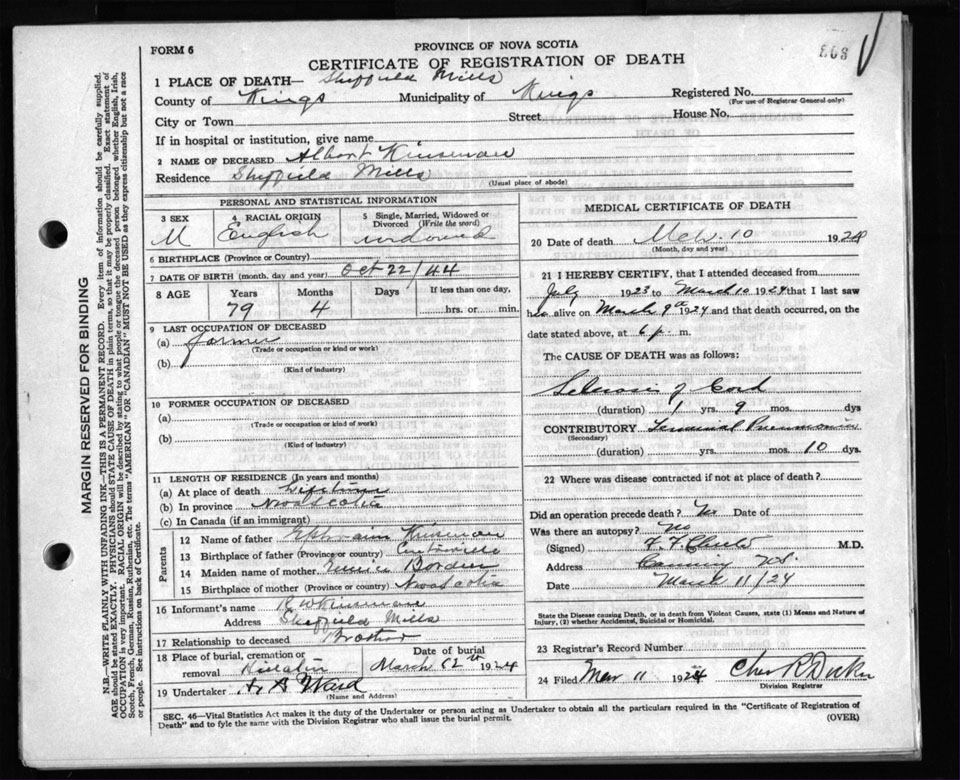 FORM 6
PROVINCE OF NOVA SCOTIA
CERTIFICATE OF REGISTRATION OF DEATH
1 PLACE OF DEATH— Sheffield Mills
County of Kings Municipality of Kings Registered No.
(For use of Registrar General only)
City or Town Street House No.
If in hospital or institution, give name
2 NAME OF DECEASED Albert Kinsman
Residence Sheffield Mills
(Usual place of abode)
PERSONAL AND STATISTICAL INFORMATION
3 SEX M
4 RACIAL ORIGIN English
5 Single, Married, Widowed or Divorced (Write the word) widowed
6 BIRTHPLACE (Province or Country)
7 DATE OF BIRTH (month, day and year) Oct 22/44
8 AGE Years 79 Months 4 Days If less than one day, hrs. or min.
9 LAST OCCUPATION OF DECEASED
(a) farmer
(Trade or occupation or kind or work)
(b)
(Kind of industry)
10 FORMER OCCUPATION OF DECEASED
(a)
(Trade or occupation or kind of work)
(b)
(Kind of industry)
11 LENGTH OF RESIDENCE (In years and months)
(a) At place of death Lifetime
(b) In province Nova Scotia
(c) In Canada (if an immigrant)
Parents
12 Name of father Kinsman
13 Birthplace of father (Province or country) Centreville
14 Maiden name of mother Borden
15 Birthplace of mother (Province or country) Nova Scotia
16 Informant's name Kinsman
Address Sheffield Mills
17 Relationship to deceased Brother
18 Place of burial, cremation or removal
Date of burial March 12th 1924
19 Undertaker A Ward
(Name and Address)
MEDICAL CERTIFICATE OF DEATH
20 Date of death Mch. 10 1924
(Month, day and year)
21 I HEREBY CERTIFY, that I attended deceased from
July 1923 to March 10 1924 that I last saw
h alive on March 9th 1924 and that death occurred, on the
date stated above, at 6 p. m.
The CAUSE OF DEATH was as follows:
Sclerosis of Cord
(duration) 1 yrs. 9 mos. dys
CONTRIBUTORY Terminal Pneumonia
(Secondary)
(duration) yrs. mos. 10 dys.
22 Where was disease contracted if not at place of death?
Did an operation precede death? No Date of
Was there an autopsy? No
(Signed) M.D.
Address Canning N.S.
Date March 11/24
State the Disease causing Death, or in death from Violent Causes, state (1) Means and Nature of Injury, (2) whether Accidental, Suicidal or Homicidal.
23 Registrar's Record Number
24 Filed Mar 11 1924 Chas R
Division Registrar
SEC. 46—Vital Statistics Act makes it the duty of the Undertaker or person acting as Undertaker to obtain all the particulars required in the "Certificate of Registration of
Death" and to fyle the same with the Division Registrar who shall issue the burial permit. (OVER)
MARGIN RESERVED FOR BINDING
N.B.—WRITE PLAINLY WITH UNFADING INK—THIS IS A PERMANENT RECORD. Every item of information should be carefully supplied.
AGE should be stated EXACTLY. PHYSICIANS should STATE CAUSE OF DEATH in plain terms, so that it may be properly classified. Exact statement of
OCCUPATION is very important. RACIAL ORIGIN will be described by stating to what people or tongue the deceased person belonged whether English, Irish,
Scotch, French, German, Russian, Ruthenian, etc. The terms "AMERICAN" OR "CANADIAN" MUST NOT BE USED as they express citizenship but not a race
or people. See instructions on back of Certificate.